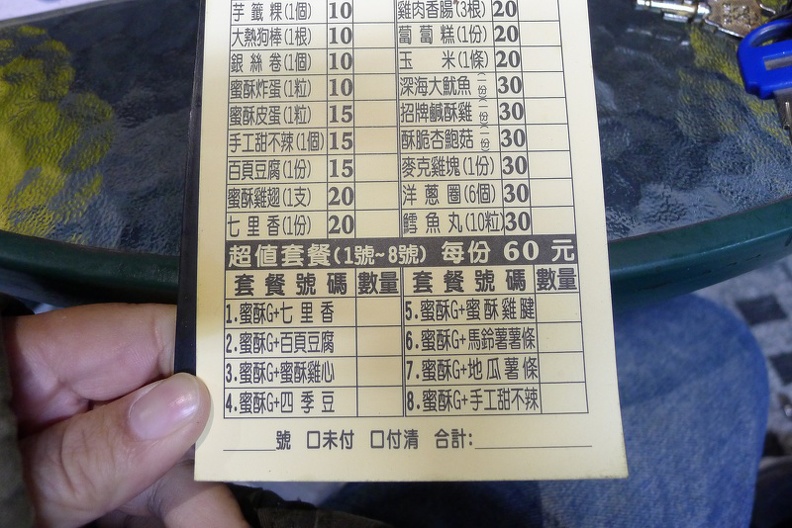 芋籤粿(1個) 10 雞肉香腸(3根) 20
大熱狗棒(1根) 10 蔔蔔糕(1份) 20
銀絲卷(1個) 10 玉米(1條) 20
蜜酥炸蛋(1粒) 10 深海大魷魚(1份) 30
蜜酥皮蛋(1粒) 15 招牌鹹酥雞(1份) 30
手工甜不辣(1個) 15 酥脆杏鮑菇(1份) 30
百頁豆腐(1份) 15 麥克雞塊(1份) 30
蜜酥雞翅(1支) 20 洋蔥圈(6個) 30
七里香(1份) 20 鱈魚丸(10粒) 30
超值套餐(1號~8號) 每份 60 元
套餐號碼 數量 套餐號碼 數量
1.蜜酥G+七里香 5.蜜酥G+蜜酥雞腱
2.蜜酥G+百頁豆腐 6.蜜酥G+馬鈴薯薯條
3.蜜酥G+蜜酥雞心 7.蜜酥G+地瓜薯條
4.蜜酥G+四季豆 8.蜜酥G+手工甜不辣
______號 □未付 □付清 合計:__________